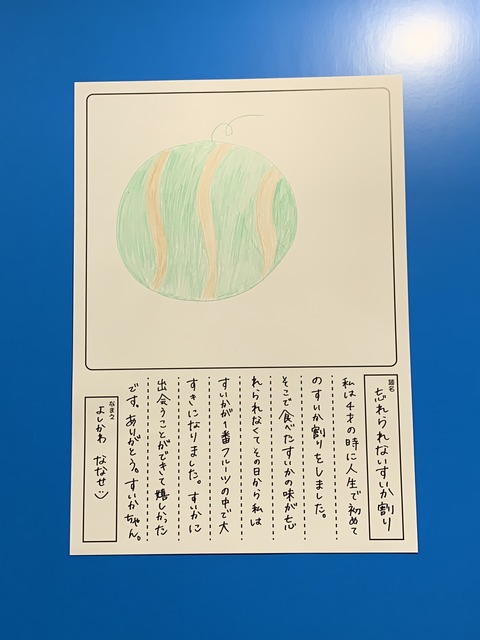 題名
忘れられないすいか割り
私は4才の時に人生で初めて
のすいか割りをしました。
そこで食べたすいかの味が忘
れられなくてその日から私は
すいかが1番フルーツの中で大
すきになりました。すいかに
出会うことができて嬉しかった
です。ありがとう。すいかちゃん。
なまえ
よしかわ ななせ